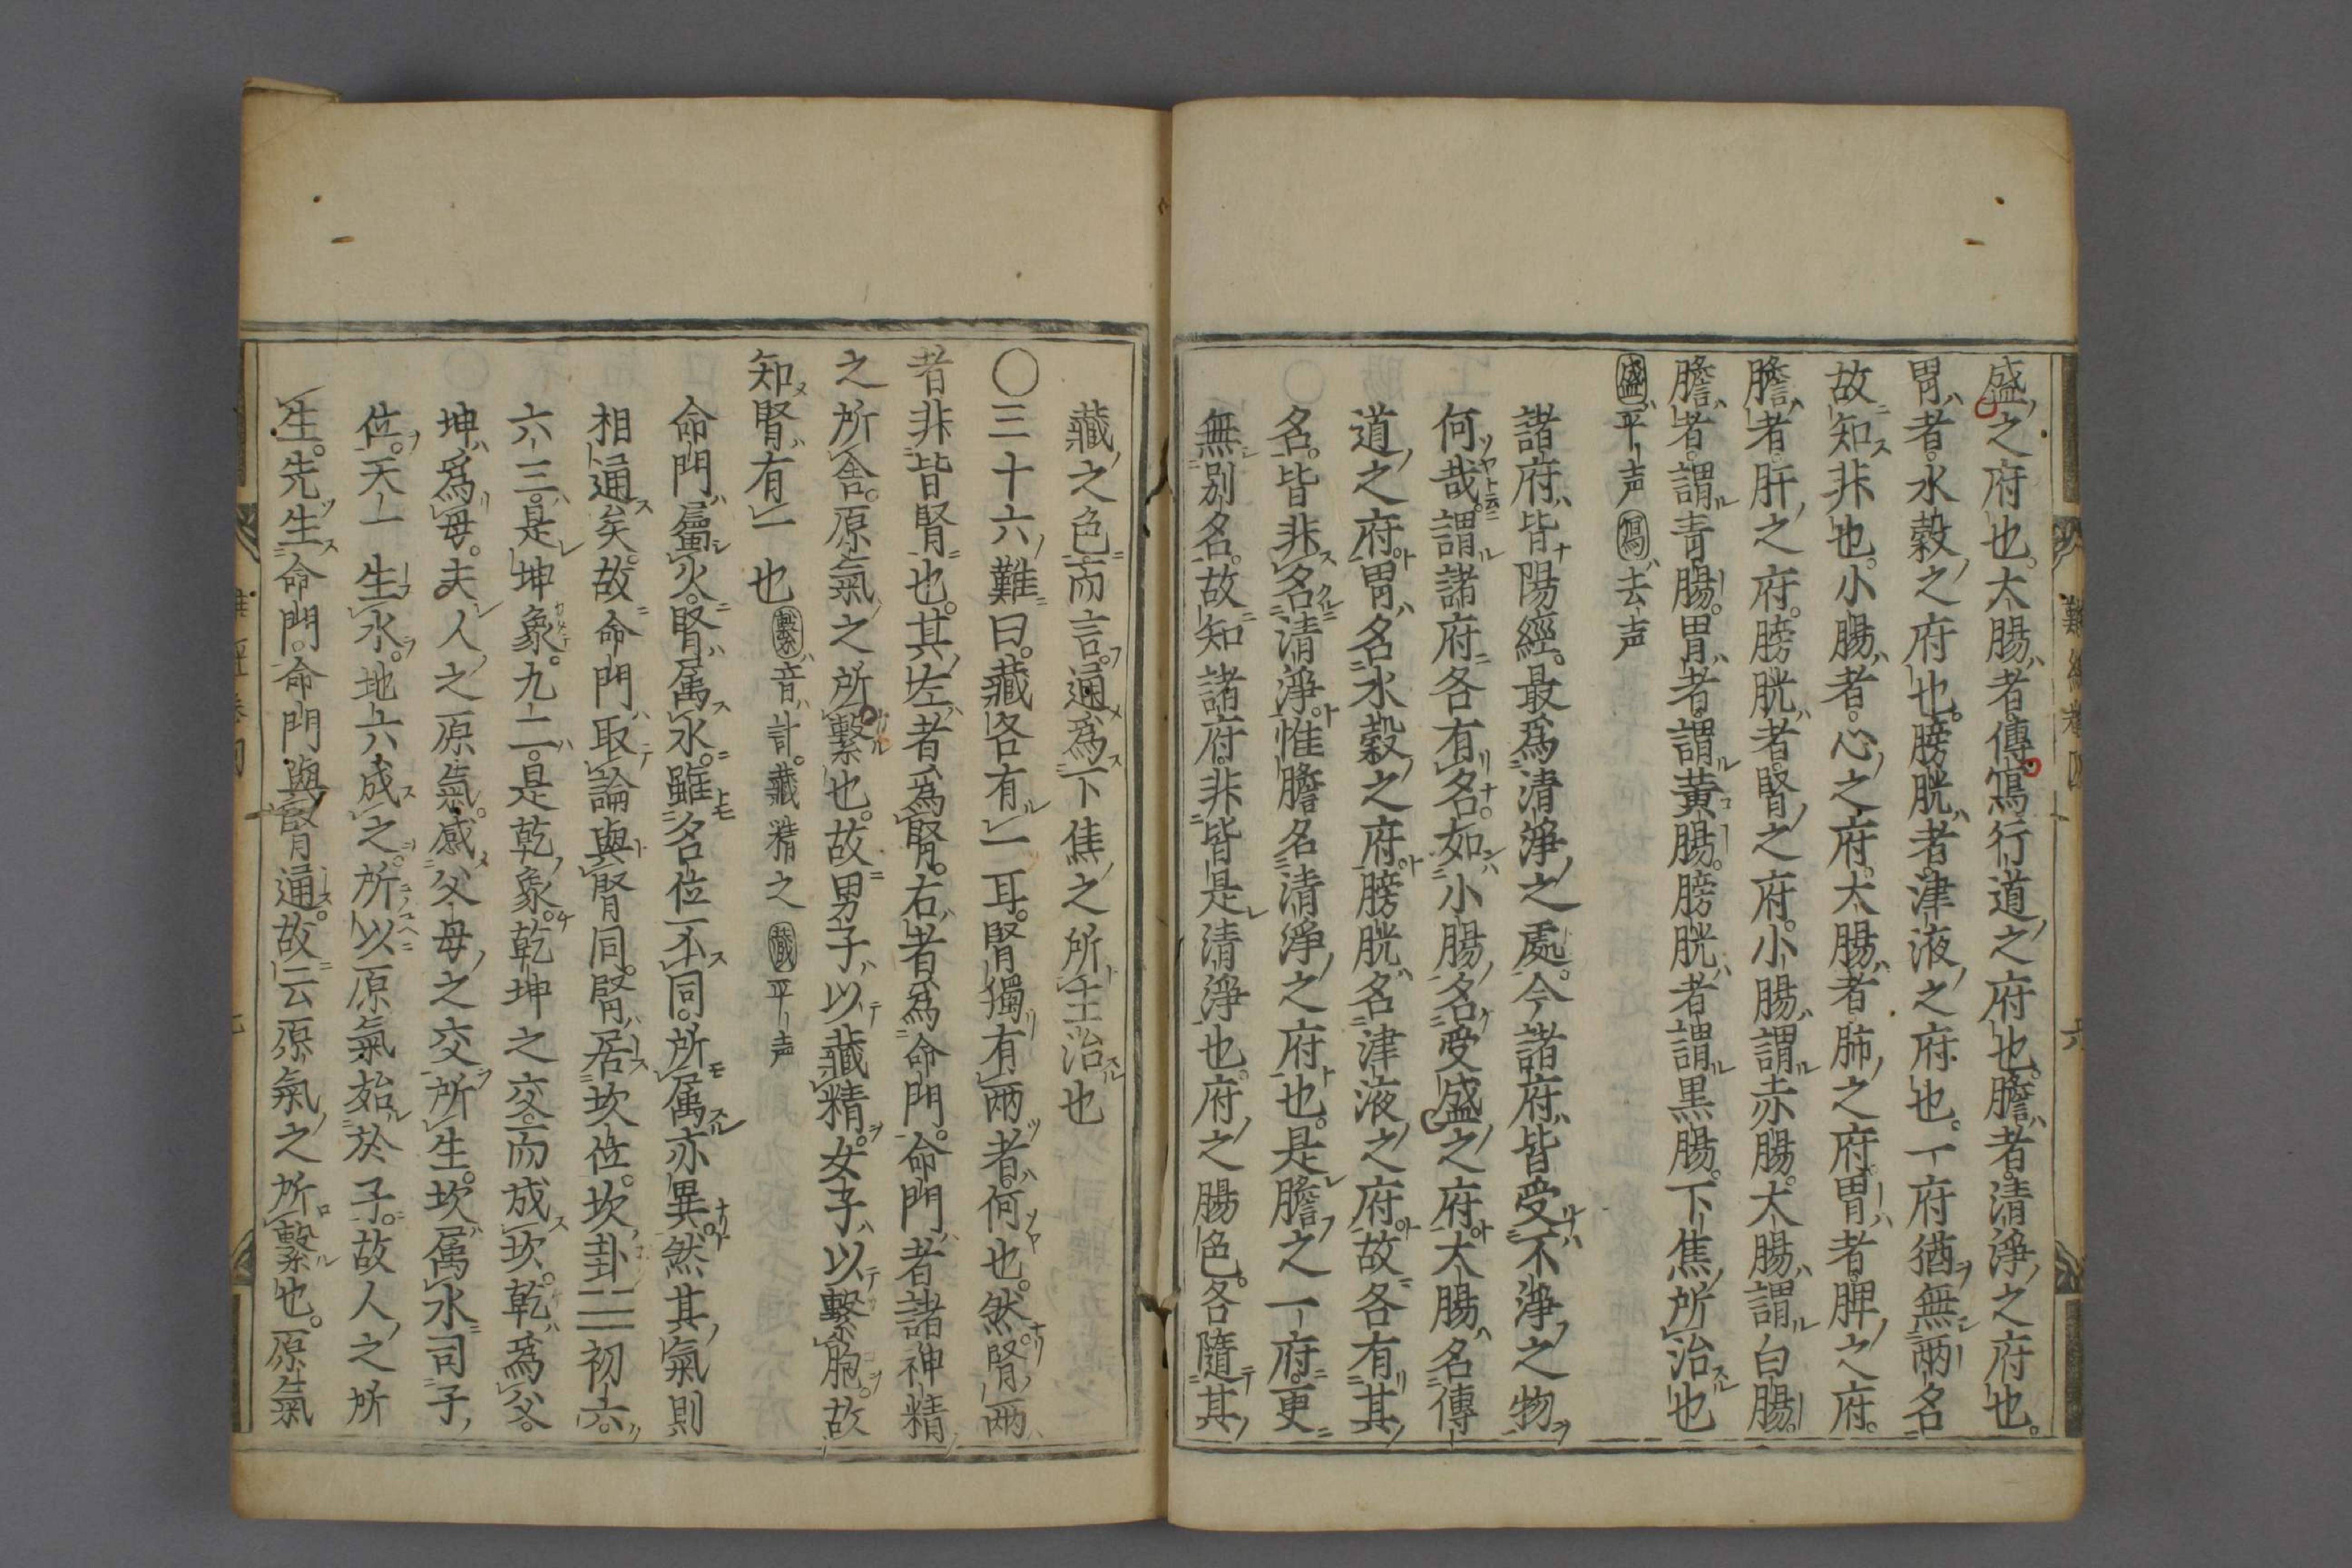 盛之府也。大腸者。傳寫行道之府也。膽者。清淨之府也。
胃者。水穀之府也。膀胱者。津液之府也。一府猶無兩名。
故知非也。小腸者。心之府。大腸者。肺之府。胃者。脾之府。
膽者。肝之府。膀胱者。腎之府。小腸謂赤腸。大腸謂白腸。
膽者。謂青腸。胃者。謂黃腸。膀胱者。謂黑腸。下焦所治也
盛平声 寫去声
諸府皆陽經。最爲清淨之處。今諸府皆受不淨之物
何哉。謂諸府各有名。如小腸名受盛之府。大腸名傳
道之府。胃名水穀之府。膀胱名津液之府。故各有其
名。皆非名清淨。惟膽名清淨之府也。是膽之一府更
無别名。故知諸府非皆是清淨也。府之腸色。各隨其
藏之色而言。通爲下焦之所主治也
〇三十六難曰。藏各有一耳。腎獨有兩者。何也。然。腎兩
者非皆腎也。其左者爲腎。右者爲命門。命門者諸神精
之所舍。原氣之所繫也。故男子以藏精。女子以繫胞。故
知腎有一也 繫音計。藏精之藏平声
命門屬火。腎属水。雖名位不同。所属亦異。然其氣則
相通矣。故命門取論與腎同。腎居坎位。坎卦☵初六。
六三。是坤象。九二。是乾象。乾坤之交。而成坎。乾爲父。
坤爲母。夫人之原氣。感父母之交所生。坎属水司子
位。天一生水。地六成之。所以原氣始於子。故人之所
生。先生命門。命門與腎通。故云原氣之所繫也。原氣
難經卷四 六